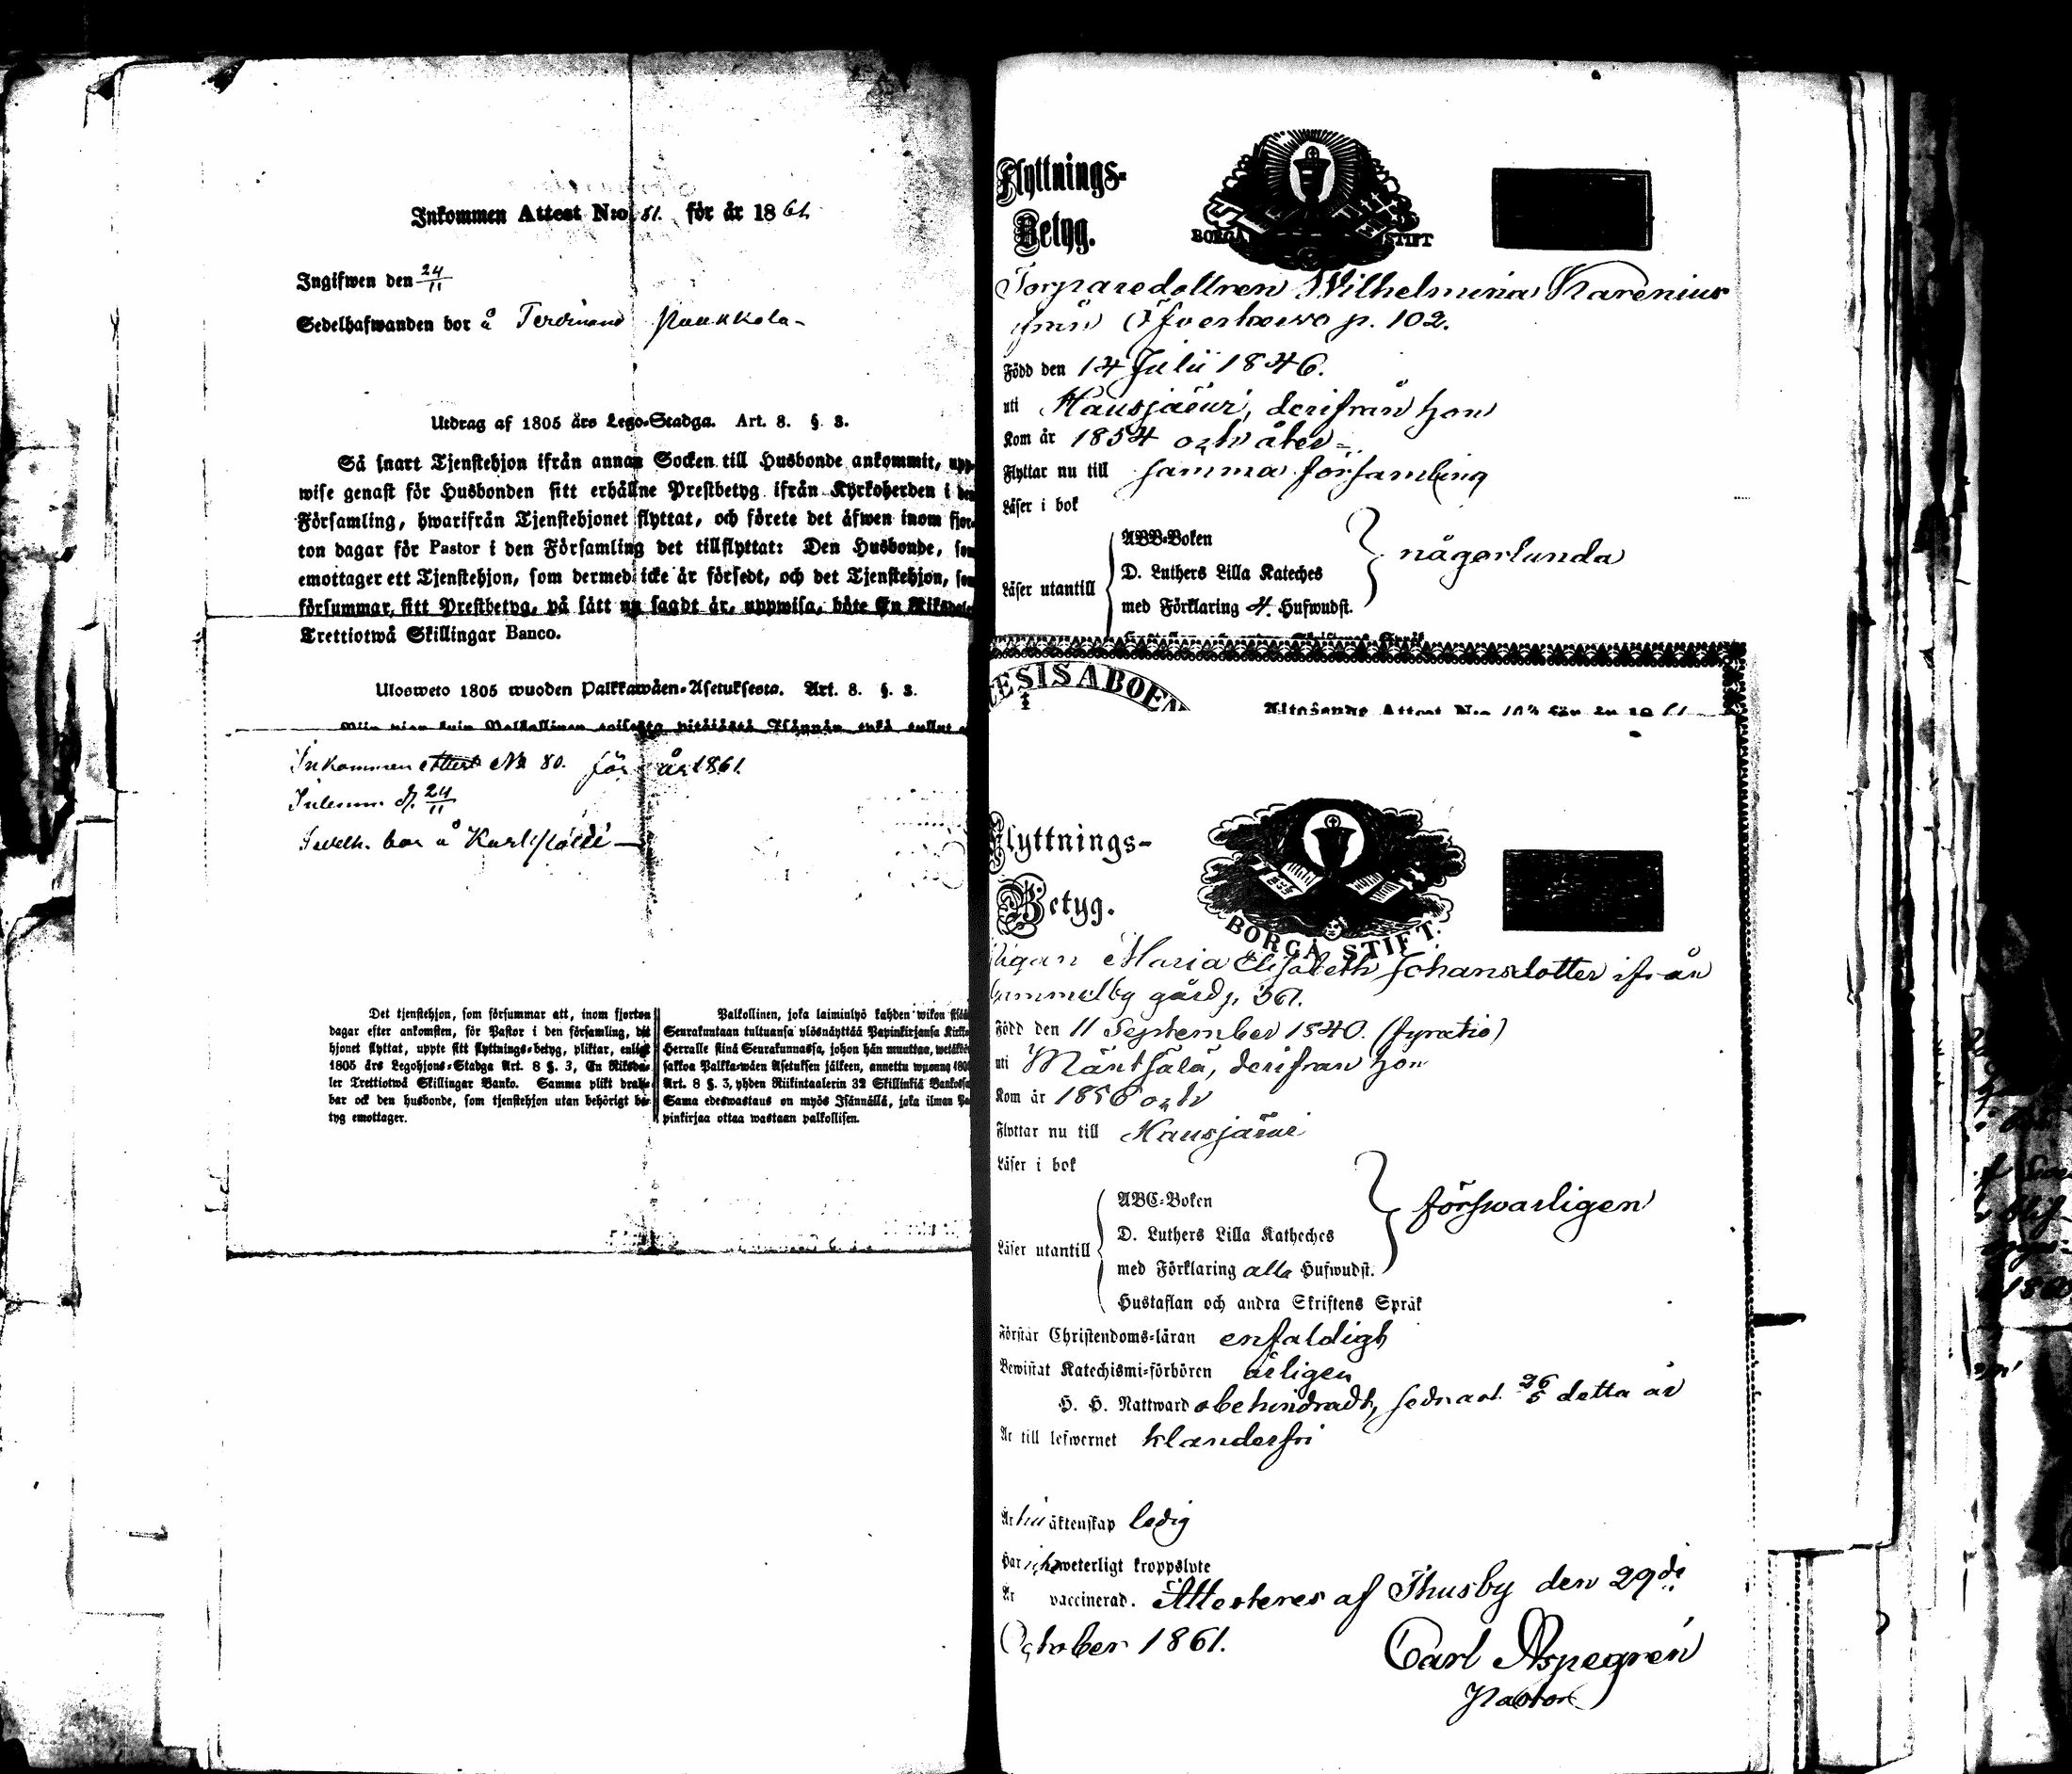 Inkommen Attest N:o 81. för år 1861
Ingifwen den 24/11
Sedelhafwanden bor å Ferdinand Paukkola
Utdrag af 1805 års Lego-Stadga. Art. 8. §. 3.
Så snart Tjenstehjon ifrån annan Socken till Husbonde ankommit, upp-
wise genast för Husbonden sitt erhållne Prestbetyg ifrån Kyrkoherden i den
Församling, hwarifrån Tjenstehjonet flyttat, och förete det äfwen inom fjor-
ton dagar för Pastor i den Församling det tillflyttat: Den Husbonde, som
emottager ett Tjenstehjon, som dermed icke är försedt, och det Tjenstehjon, som
försummar, sitt Prestbetyg, på sätt nu sagdt är, uppwisa, böte En Riksdaler
Trettiotwå Skillingar Banco.
Ulosweto 1805 wuoden Palkkawäen-Asetuksesta. Art. 8. §. 3.
Inkommen Attest No 80. för år 1861.
Inlemn. d. 24/11
Sedelh. bor å
Det tjenstehjon, som försummar att, inom fjorton
dagar efter ankomsten, för Pastor i den församling, dit
hjonet flyttat, uppte sitt flyttnings-betyg, pliktar, enligt
1805 års Legohjons-Stadga Art. 8 §. 3, En Riksda-
ler Trettiotwå Skillingar Banko. Samma plikt drab-
bar ock den husbonde, som tjenstehjon utan behörigt be-
tyg emottager.
Palkollinen, joka laiminlyö kahden wikon sisään
Seurakuntaan tultuansa ylösnäyttää Papinkirjansa Kirkko
Herralle siinä Seurakunnassa, johon hän muuttaa, wetäköön
sakkoa Palkka-wäen Asetuksen jälkeen, annettu wuonna 1805
Art. 8 §. 3, yhden Riikintaalerin 32 Skillinkiä Bankossa
Sama edeswastaus on myös Isännällä, joka ilman Pa-
pinkirjaa ottaa wastaan palkollisen.
Flyttnings-
Betyg.
BORGÅ STIFT
Torparedottren Wilhelmina Karenius
från p. 102.
Född den 14 Julii 1846.
uti Hausjärvi, derifrån hon
Kom år 1854 och åter-
Flyttar nu till samma församling
Läser i bok
Läser utantill
ABC-Boken
D. Luthers Lilla Kateches
med Förklaring 4. Hufwudst.
någorlunda
ESIS ABOEN
Utgående Attest N:o 103 för år 1861
Flyttnings-
Betyg.
BORGÅ STIFT.
Pigan Maria Elisabeth Johansdotter ifrån
gård p. 361.
Född den 11 September 1840. (fyratio)
uti Mäntsälä, derifrån hon
Kom år 1856 och
Flyttar nu till Hausjärvi
Läser i bok
Läser utantill
ABC-Boken
D. Luthers Lilla Katheches
med Förklaring alla Hufwudst.
Hustaflan och andra Skriftens Språk
försvarligen
Förstår Christendoms-läran enfaldigt
Bewistat Katechismi-förhören årligen
H. H. Nattward obehindradt, sednast 26/5 detta år
Är till lefwernet klanderfri
Är till äktenskap ledig
Har icke weterligt kroppslyte
Är vaccinerad. Attesteres af Thusby den 29de
October 1861.
Carl Aspegren
Pastor